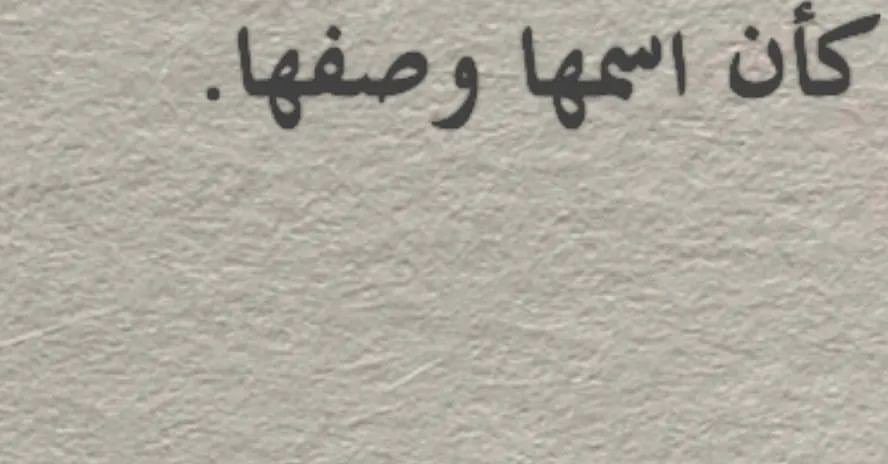 كأن اسمها وصفها.